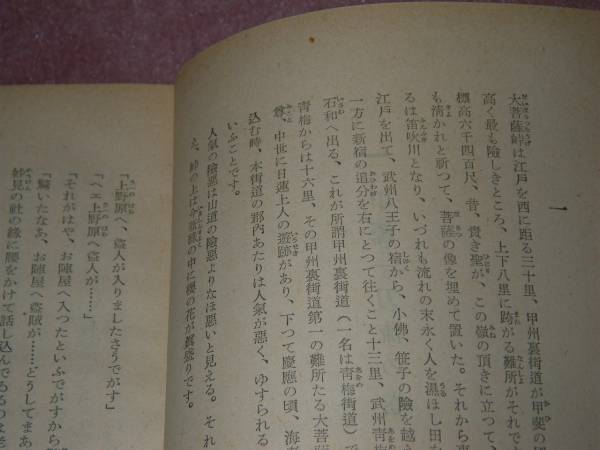 一
大菩薩峠は江戸を西に距る三十里、甲州裏街道が甲斐の国
高く最も険しきところ、上下八里に跨がる難所がそれで
標高六千四百尺、昔、貴き聖が、この嶺の頂に立つて、
も清かれと祈つて、菩薩の像を埋めて置いた。それから東
るは笛吹川となり、いづれも流れの末永く人を濕ほし田
江戸を出て、武州八王子の宿から、小佛、笹子の險を越
一方に新宿の追分を右にとつて往くこと十三里、武州青梅
石和へ出る、これが所謂甲州裏街道（一名は青梅街道）で
青梅からは十六里、その甲州裏街道第一の難所たる大菩
、中世に日蓮上人の遺跡があり、下つて慶應の頃、海
込む時、本街道の郡内あたりは人氣が悪く、ゆすられる
いふことです。
人氣の險惡は山道の險惡よりなほ惡いと見える。それ
た。峠の上は今新緑の中に櫻の花が眞盛りです。
「上野原へ、盗人が入りましたさうでがす」
「ヘエ上野原へ盗人が……」
「それがはや、お陣屋へ入つたといふでがすから
「驚いたなあ、お陣屋へ盗賊が……どうしてまあ
妙見の社の縁に腰をかけて話し込んでゐるのは